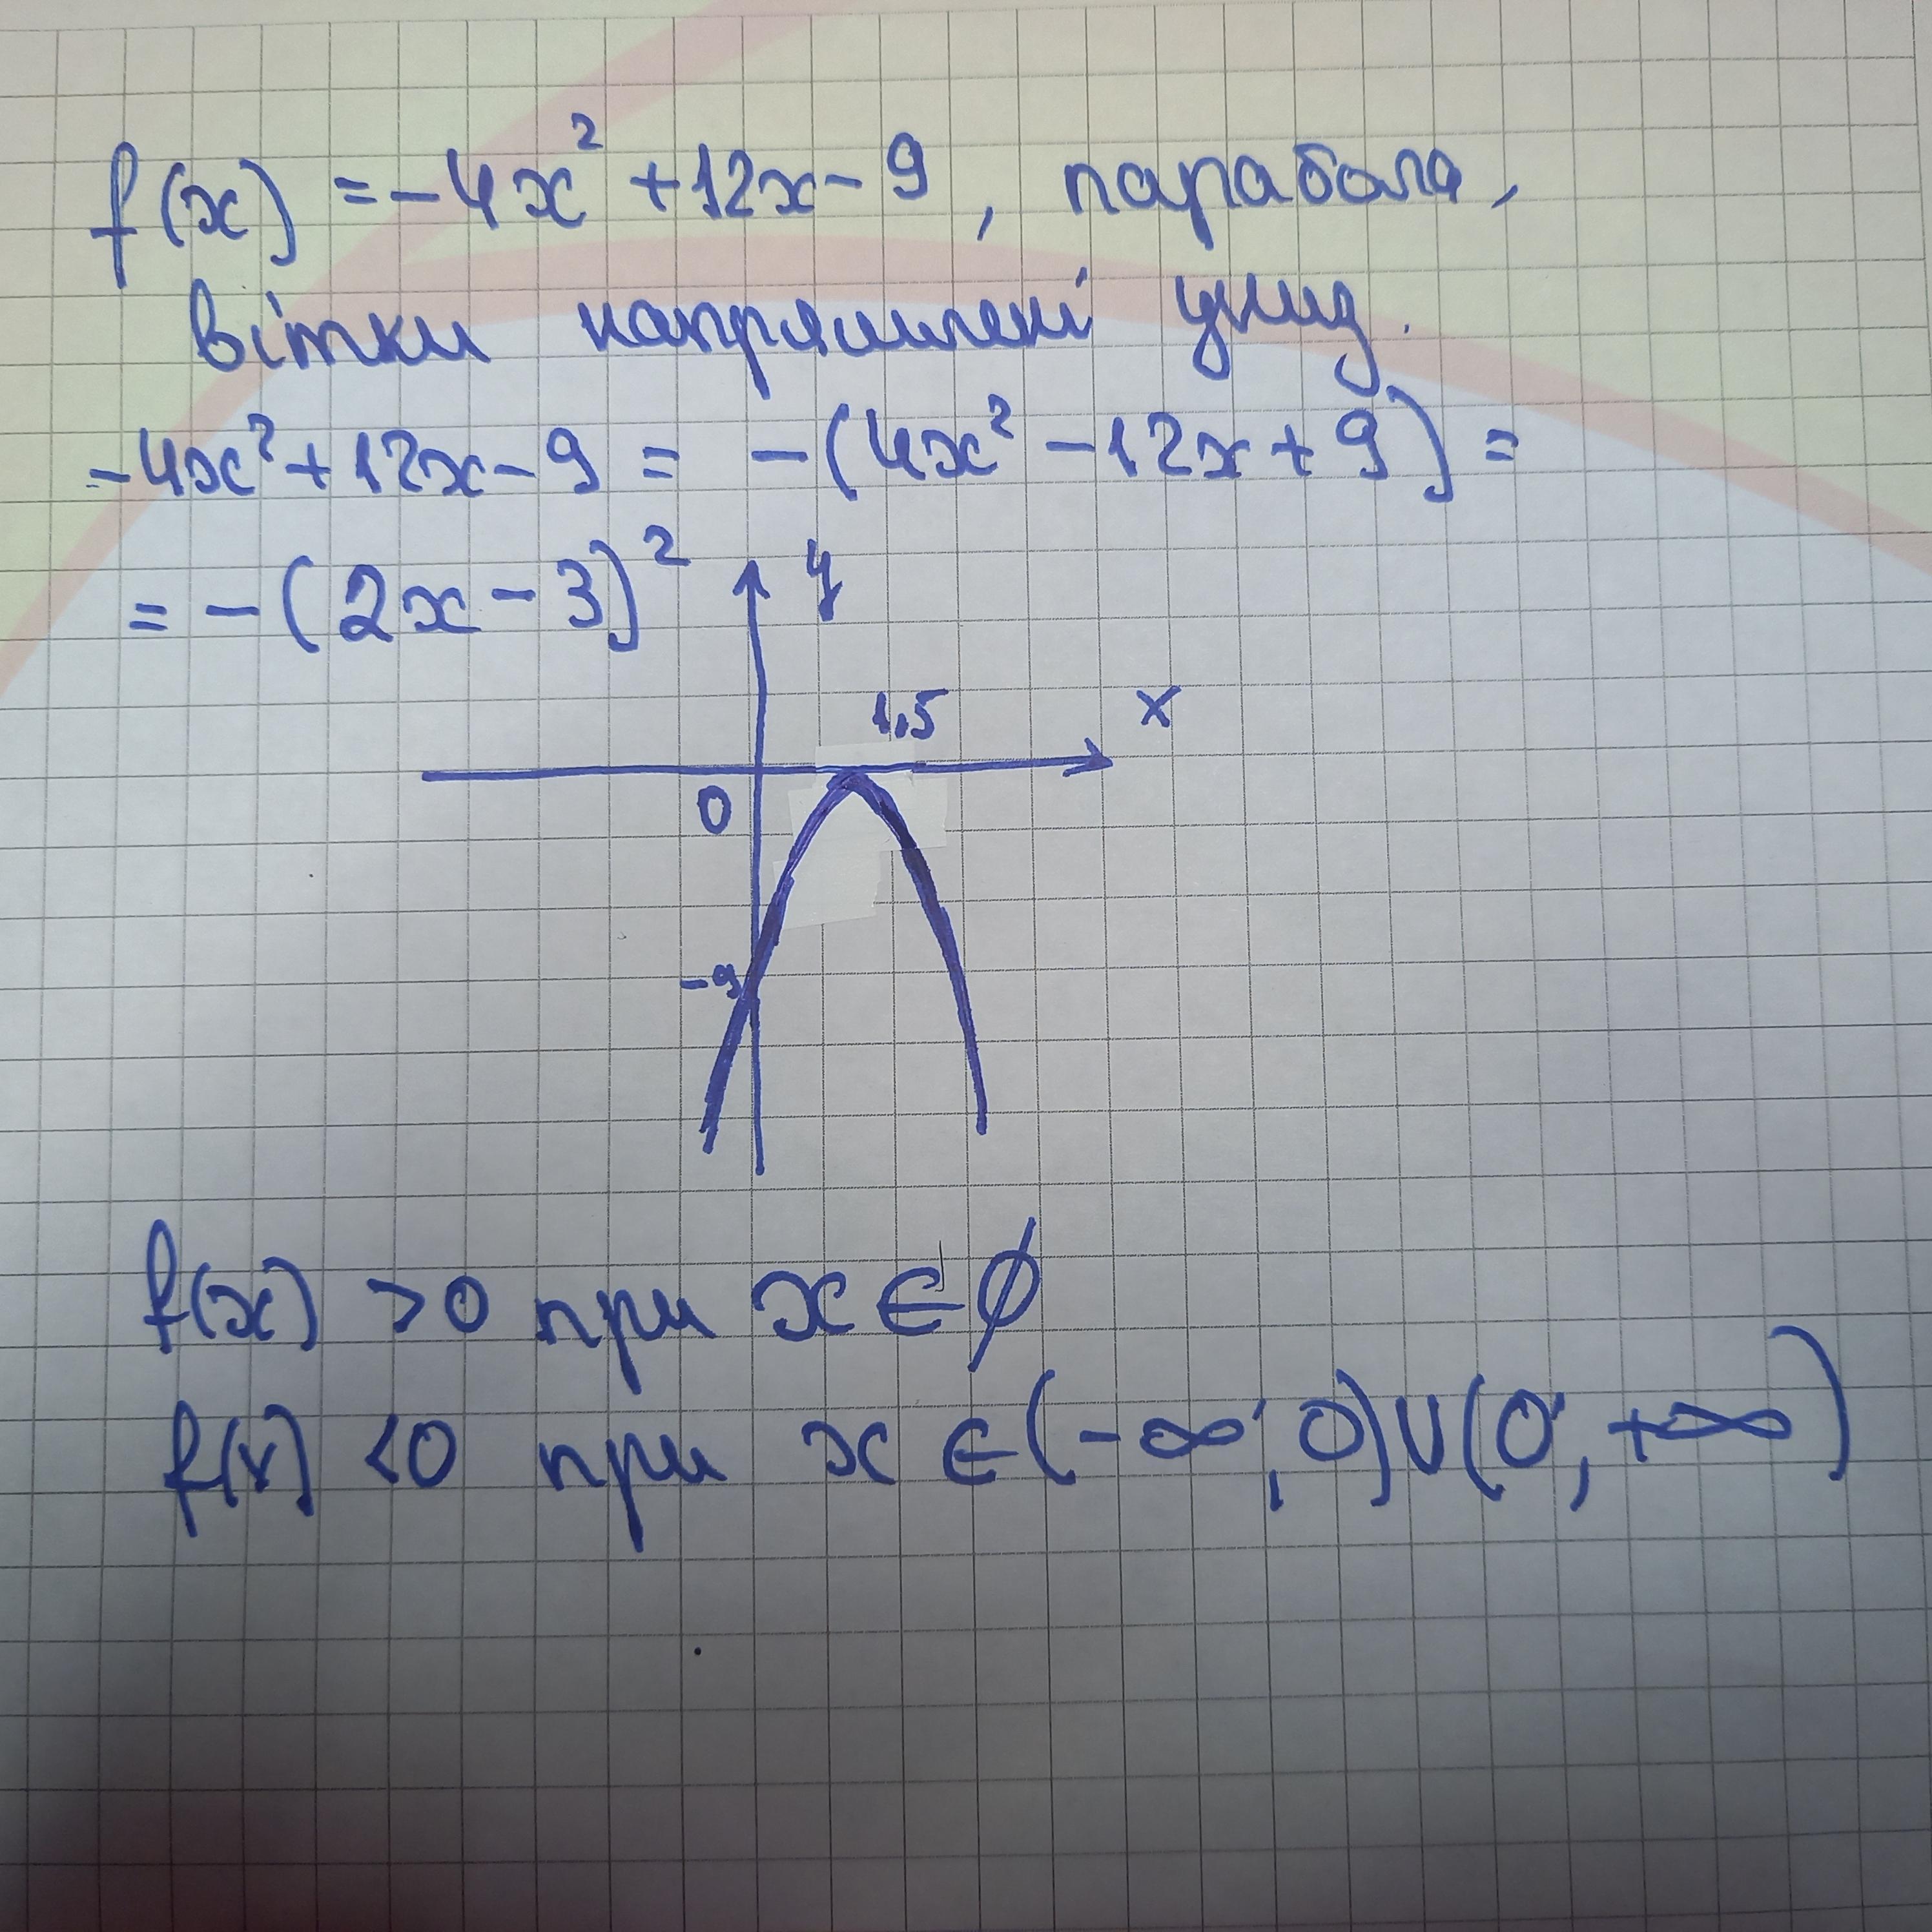 f(x) = -4x² + 12x - 9, парабола,
вітки напрямлені униз.
-4x² + 12x - 9 = -(4x² - 12x + 9) =
= -(2x - 3)²
y
1,5
x
0
-9
f(x) > 0 при x ∈ ∅
f(x) < 0 при x ∈ (-∞; 0) ∪ (0; +∞)